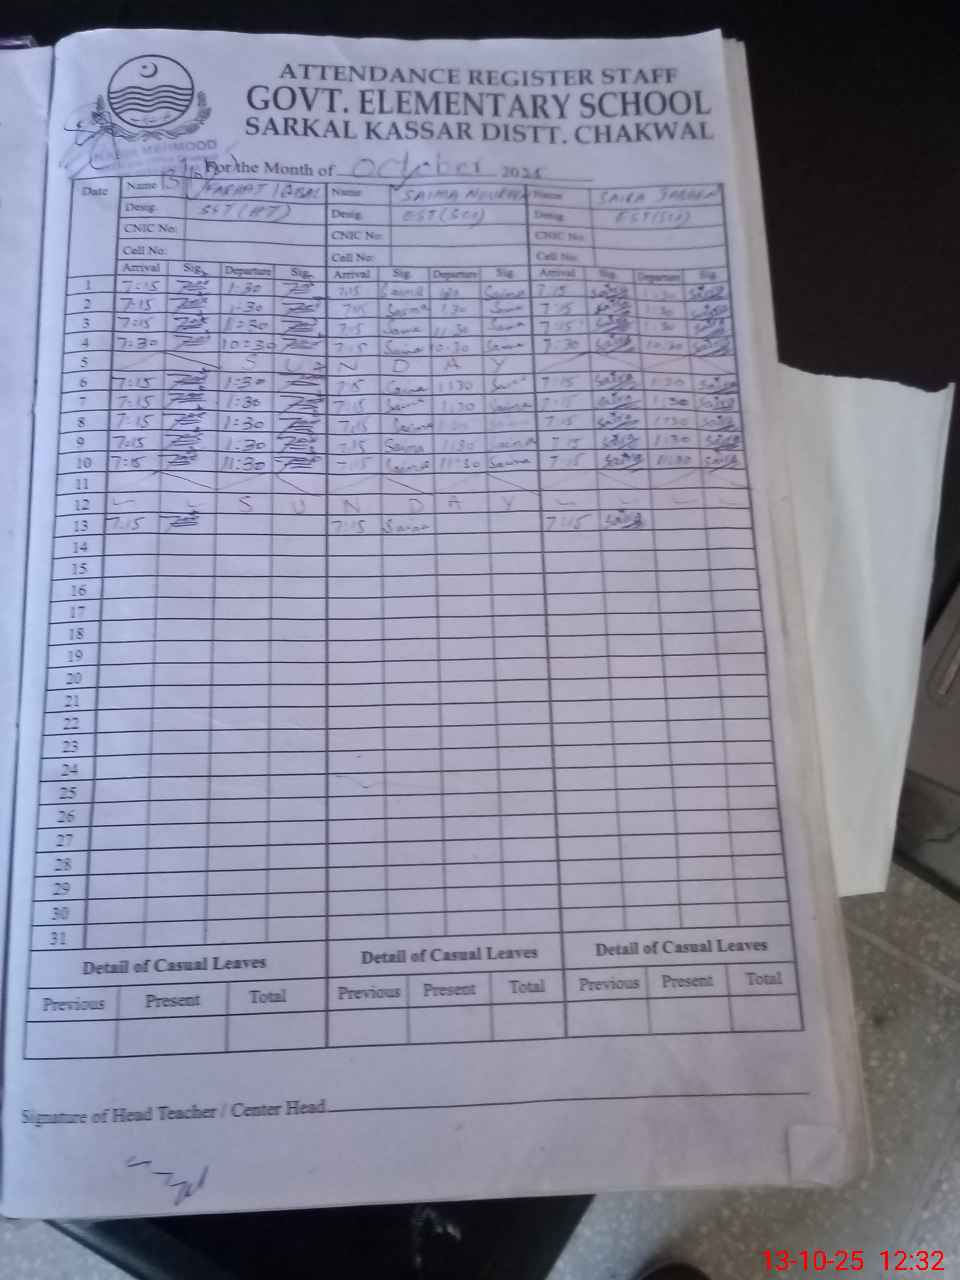 ATTENDANCE REGISTER STAFF
GOVT. ELEMENTARY SCHOOL
SARKAL KASSAR DISTT. CHAKWAL
MEHMOOD
For the Month of October 2025
Date Name FARHAT IQBAL Name SAIMA Name SAIRA
Desig. SST(HT) Desig. EST(Sci) Desig. EST(Sci)
CNIC No: CNIC No: CNIC No:
Cell No: Cell No: Cell No:
Arrival Sig. Departure Sig. Arrival Sig. Departure Sig. Arrival Sig. Departure Sig.
1 7:15 1:30 7:15 Saima Saima 7:15 Saira 1:30 Saira
2 7:15 1:30 7:15 Saima 1:30 Saima 7:15 1:30 Saira
3 7:15 11:30 7:15 Saima 11:30 Saima 7:15 Saira Saira
4 7:30 10:30 7:15 Saima 10:30 Saima 7:30 Saira 10:30 Saira
5 S U N D A Y
6 7:15 1:30 7:15 Saima 1:30 Saima 7:15 Saira 1:30 Saira
7 7:15 1:30 7:15 Saima 1:30 Saima 7:15 Saira 1:30 Saira
8 7:15 1:30 7:15 Saima 7:15 Saira 1:30 Saira
9 7:15 1:30 7:15 Saima 1:30 Saima 7:15 Saira 1:30 Saira
10 7:15 11:30 7:15 Saima 11:30 Saima 7:15 Saira 11:30 Saira
11
12 S U N D A Y
13 7:15 7:15 Saima 7:15 Saira
14
15
16
17
18
19
20
21
22
23
24
25
26
27
28
29
30
31
Detail of Casual Leaves Detail of Casual Leaves Detail of Casual Leaves
Previous Present Total Previous Present Total Previous Present Total
Signature of Head Teacher / Center Head
13-10-25 12:32